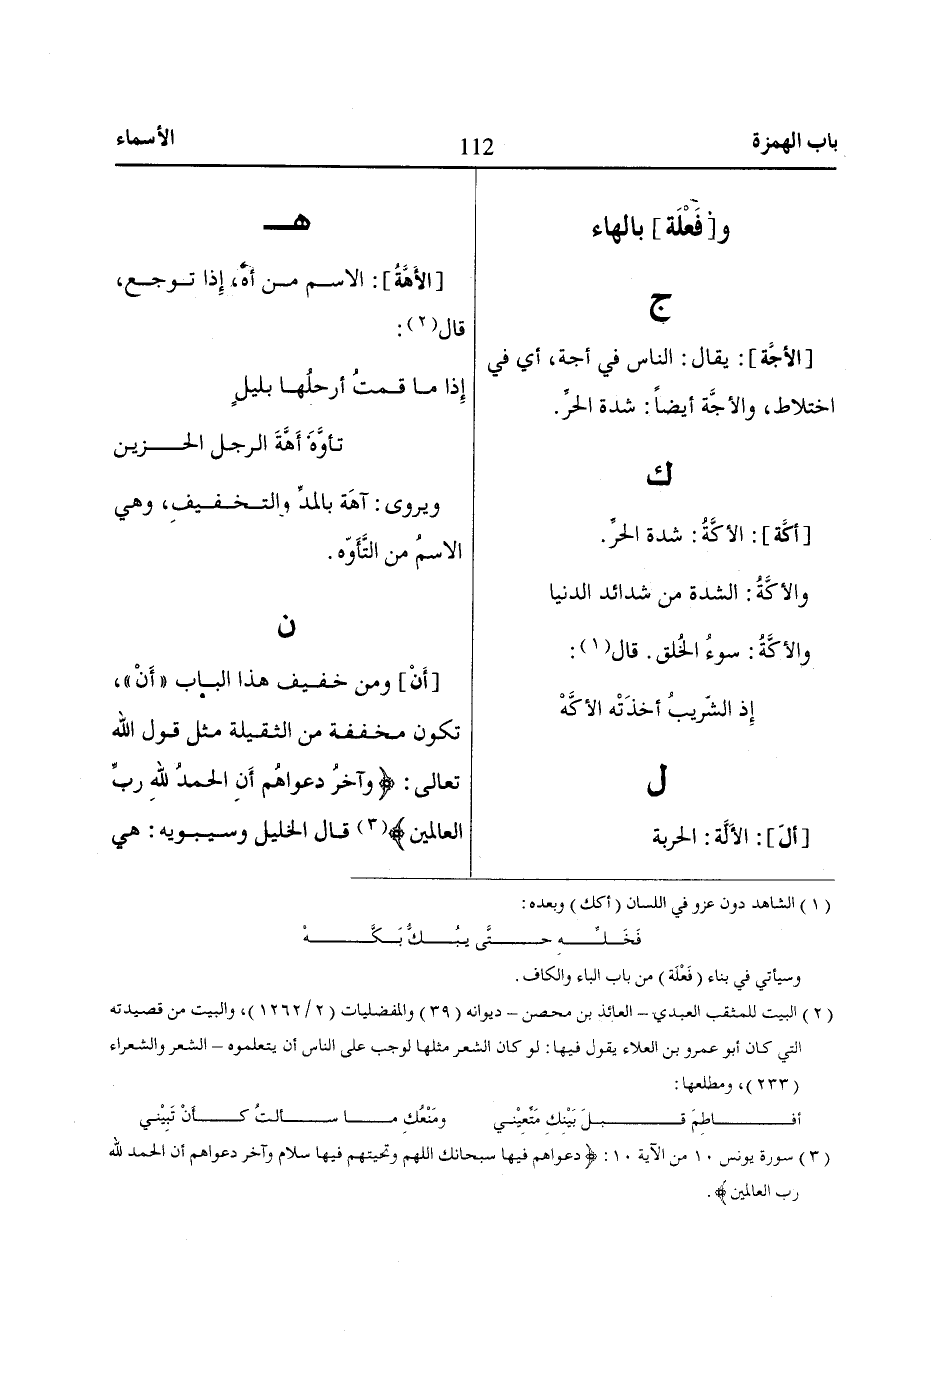 باب الهمزة
112
الأسماء
و[فَعْلَة] بالهاء
ج
[الأجَّة]: يقال: الناس في أجة، أي في
اختلاط، والأجَّة أيضاً: شدة الحرِّ.
ك
[أكَّة]: الأكَّةُ: شدة الحرِّ.
والأكَّةُ: الشدة من شدائد الدنيا
والأكَّةُ: سوءُ الخُلق. قال(١):
إذ الشّريبُ أخذَتْه الأكَّهْ
ل
[ألّ]: الألَّة: الحربة
هـ
[الأَهَّةُ]: الاسم من أهّ، إذا توجع،
قال(٢):
إذا ما قمتُ أرحلُها بليلٍ
تأوَّهَ أَهَّةَ الرجل الحزين
ويروى: آهَة بالمدِّ والتخفيف، وهي
الاسمُ من التَّأَوّه.
ن
[أَنْ] ومن خفيف هذا الباب «أَنْ»،
تكون مخففة من الثقيلة مثل قول الله
تعالى: ﴿وآخرُ دعواهُم أَنِ الحمدُ للهِ ربِّ
العالمين﴾(٣) قال الخليل وسيبويه: هي
(١) الشاهد دون عزو في اللسان (أكك) وبعده:
فَخَلِّه حتَّى يبُكَّ بَكَّهْ
وسيأتي في بناء (فَعْلَة) من باب الباء والكاف.
(٢) البيت للمثقب العبدي – العائذ بن محصن – ديوانه (٣٩) والمفضليات (١٢٦٢/٢)، والبيت من قصيدته
التي كان أبو عمرو بن العلاء يقول فيها: لو كان الشعر مثلها لوجب على الناس أن يتعلموه – الشعر والشعراء
(٢٣٣)، ومطلعها:
أفاطمَ قبلَ بَيْنِكِ مَتِّعِيْني ومَنْعُكِ ما سألتُ كأنْ تَبِيْني
(٣) سورة يونس ١٠ من الآية ١٠: ﴿دعواهم فيها سبحانك اللهم وتحيتهم فيها سلام وآخر دعواهم أن الحمد لله
رب العالمين﴾.